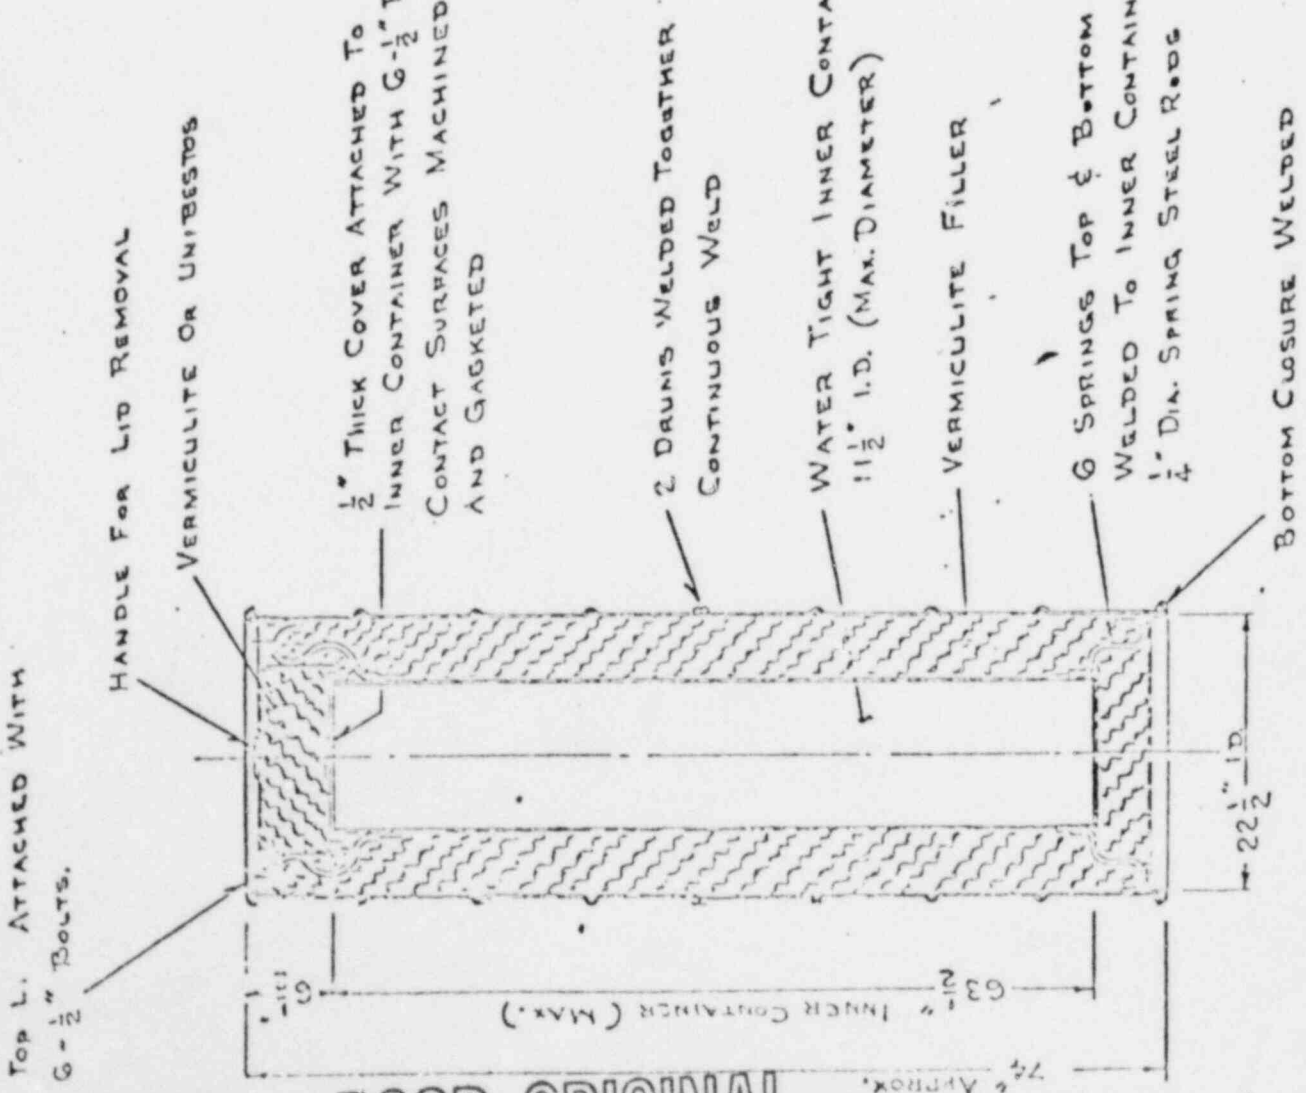 Top L. ATTACHED WITH
6 - 1/2" BOLTS.
HANDLE FOR LID REMOVAL
VERMICULITE OR UNIBESTOS
1/2" THICK COVER ATTACHED TO
INNER CONTAINER WITH 6-1/2"
CONTACT SURFACES MACHINED
AND GASKETED
2 DRUMS WELDED TOGETHER
CONTINUOUS WELD
WATER TIGHT INNER CONTA
11 1/2" I.D. (MAX. DIAMETER)
VERMICULITE FILLER
6 SPRINGS TOP & BOTTOM
WELDED TO INNER CONTAIN
1/4" DIA. SPRING STEEL RODS
BOTTOM CLOSURE WELDED
22 1/2" ID
63 1/2" INNER CONTAINER (MAX.)
74" APPROX.
ORIGINAL